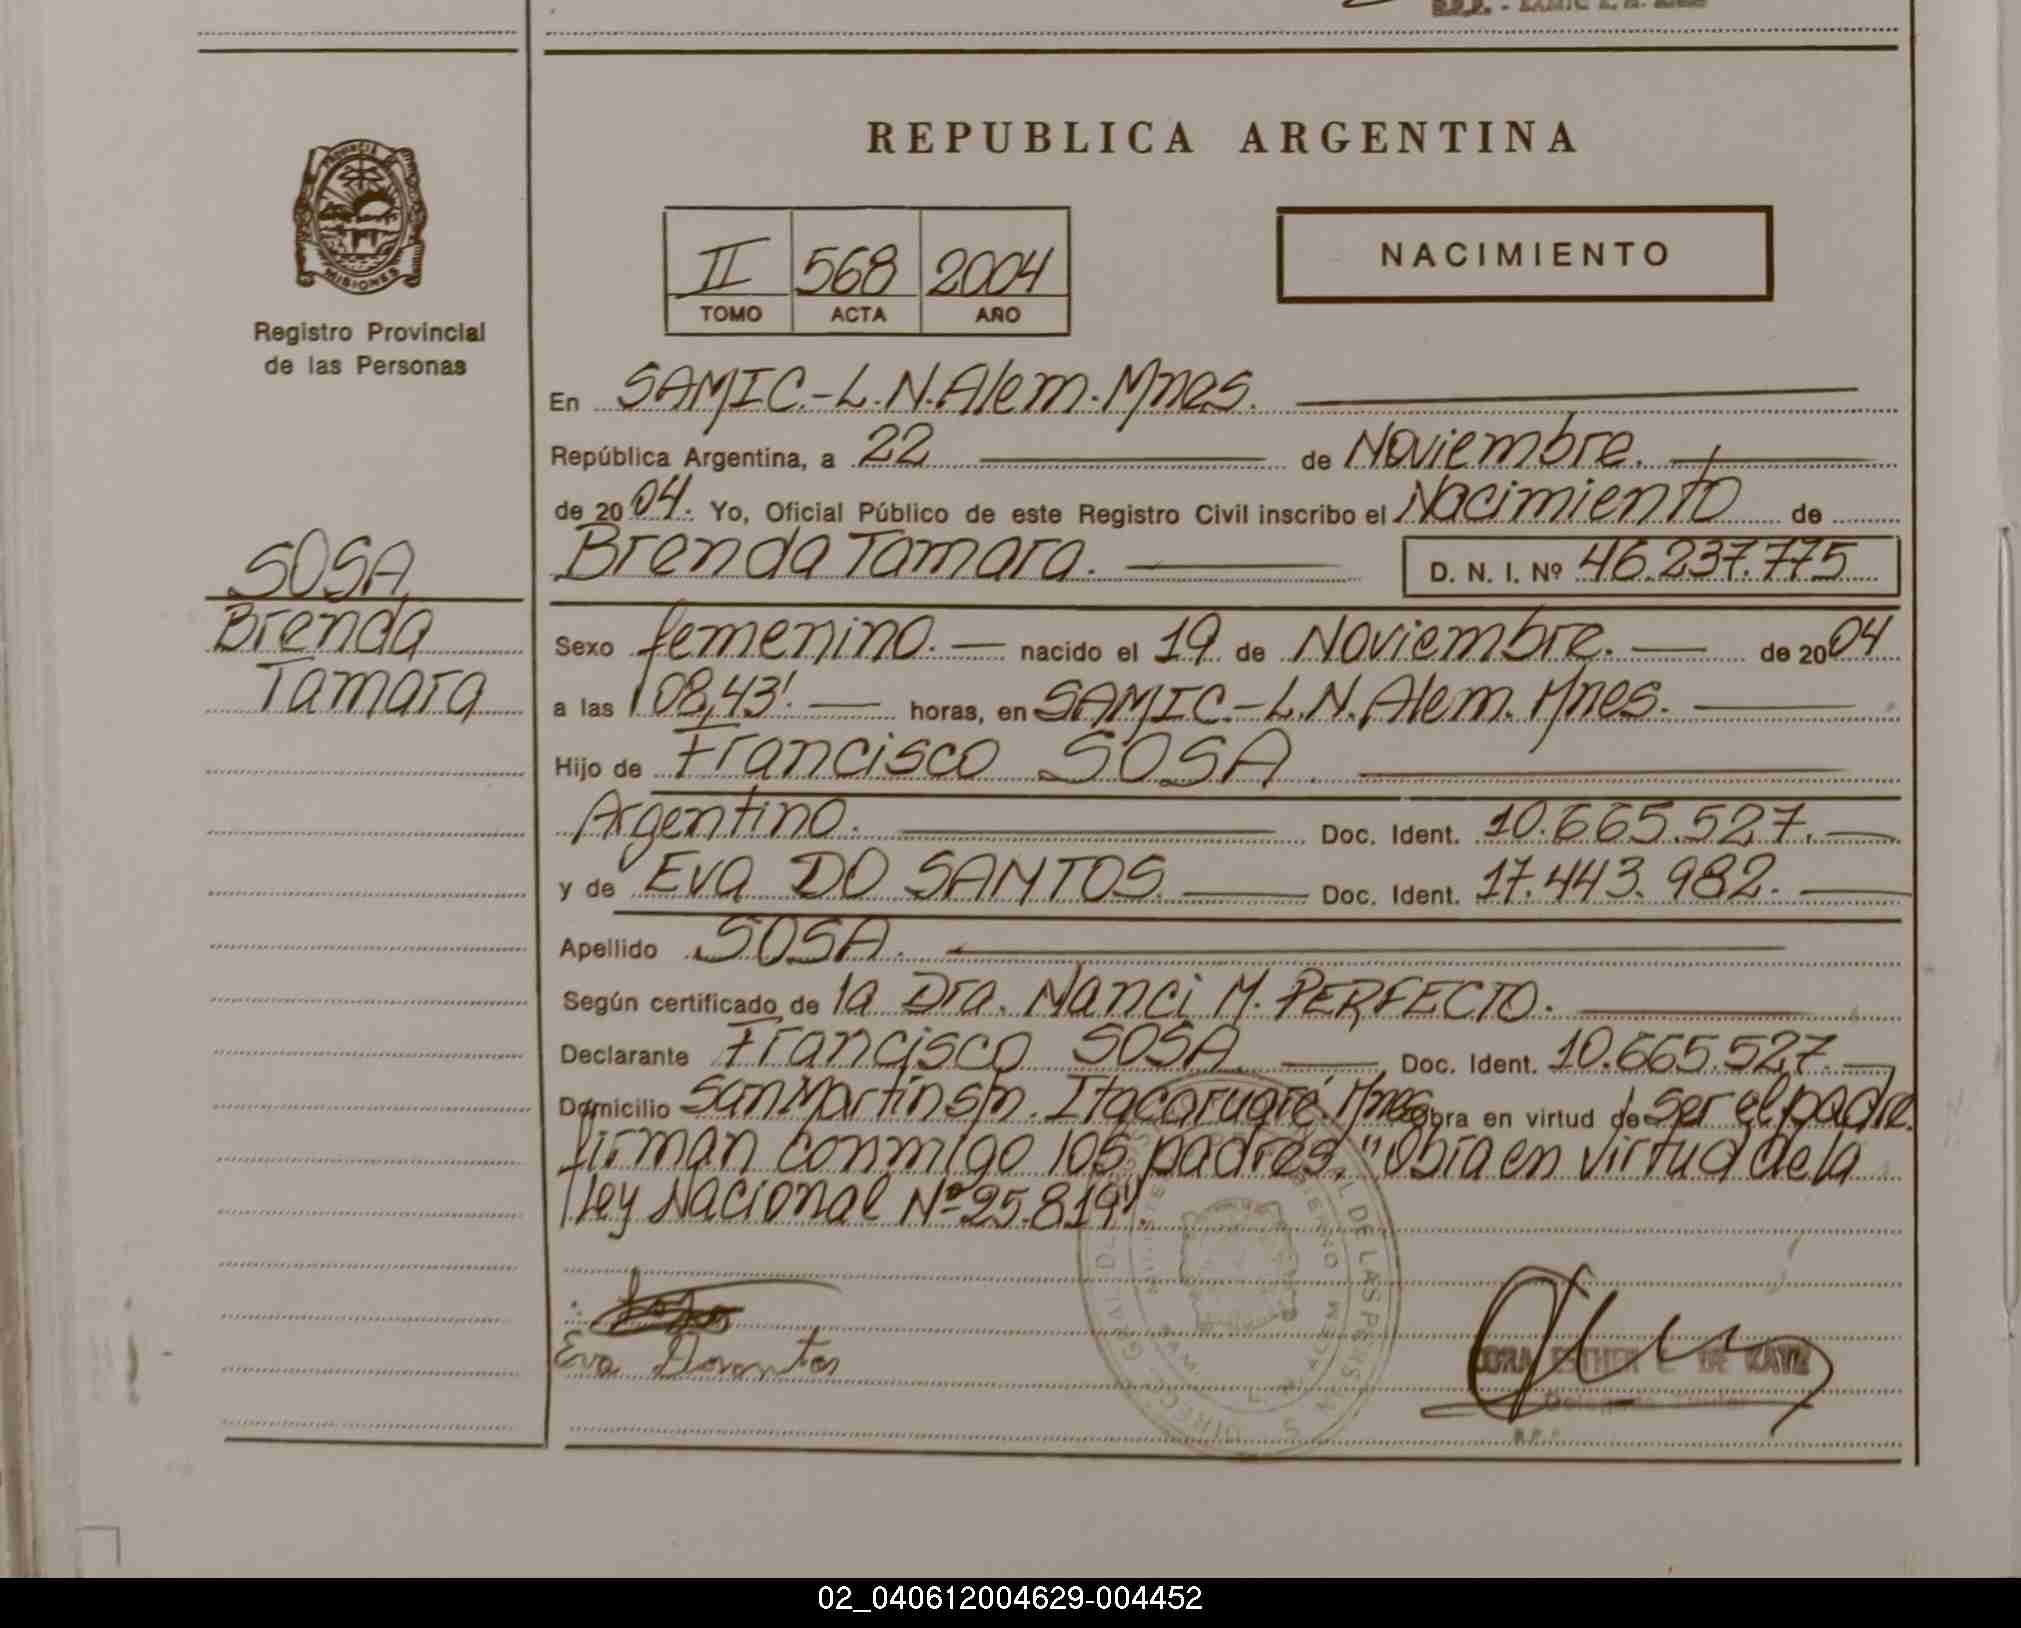 REPUBLICA ARGENTINA
PROVINCIA DE
MISIONES
Registro Provincial
de las Personas
II 568 2004
TOMO ACTA AÑO
NACIMIENTO
En SAMIC.-L.N.Alem.Mnes.
República Argentina, a 22 de Noviembre.
de 2004. Yo, Oficial Público de este Registro Civil inscribo el Nacimiento de
Brenda Tamara. D. N. I. Nº 46.237.775
SOSA
Brenda
Tamara
Sexo femenino. nacido el 19 de Noviembre. de 2004
a las 08,43'. horas, en SAMIC.-L.N.Alem. Mnes.
Hijo de Francisco SOSA.
Argentino. Doc. Ident. 10.665.527.
y de Eva DO SANTOS. Doc. Ident. 17.443.982.
Apellido SOSA.
Según certificado de la Dra. Nanci M. PERFECTO.
Declarante Francisco SOSA. Doc. Ident. 10.665.527.
Domicilio San Martín s/n. Itacaruaré. Mnes. Obra en virtud de ser el padre.
firman conmigo los padres. "Obra en virtud de la
Ley Nacional Nº 25.819".
Eva
ESTHER DE
02_040612004629-004452